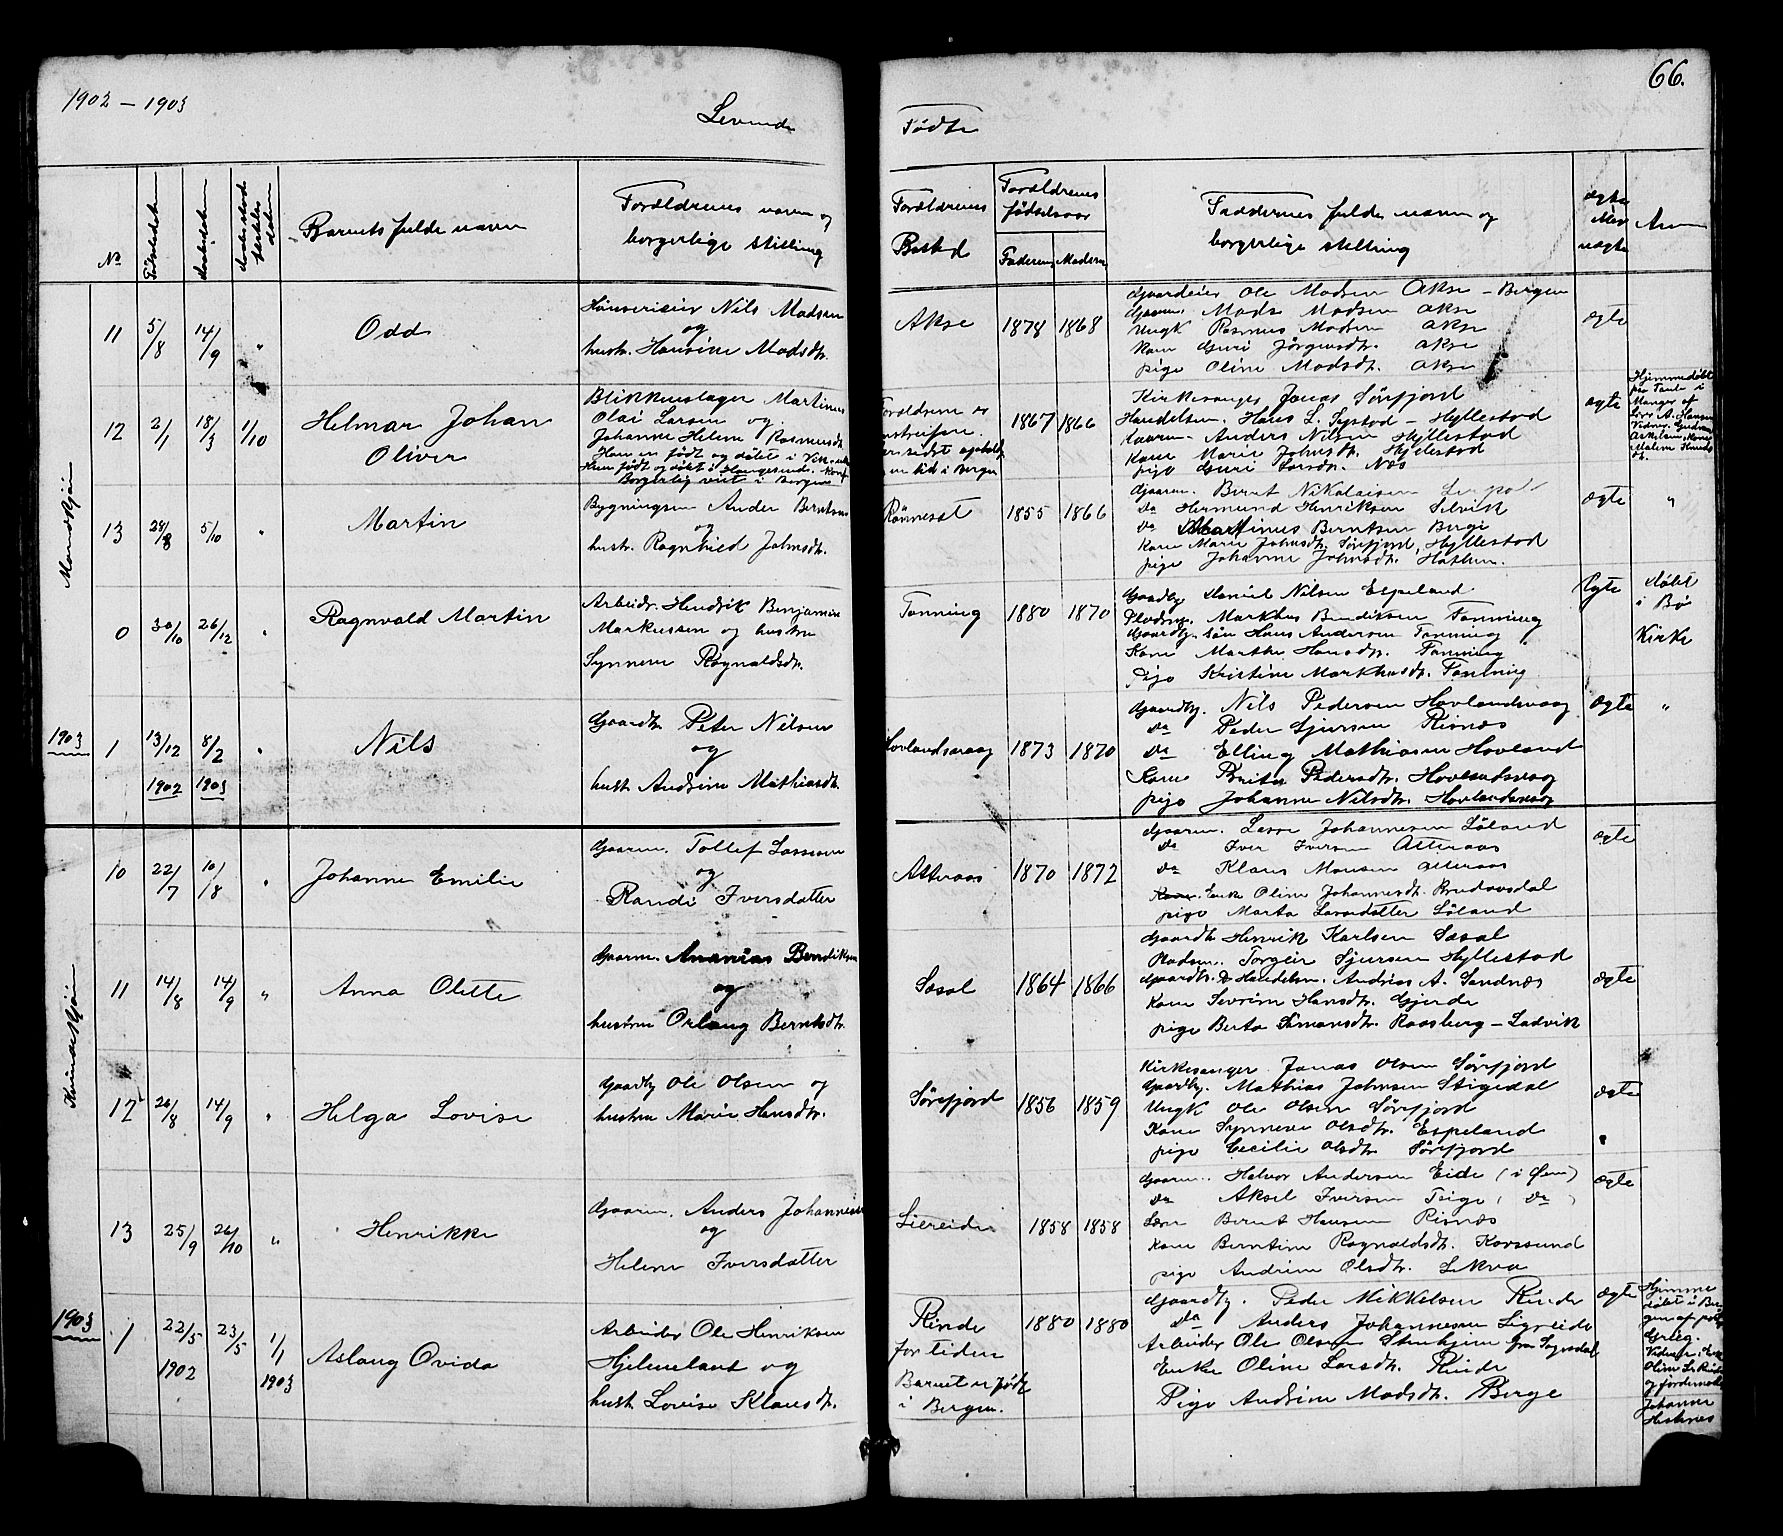 1902 – 1903
Levende
Fødte
66.
No
Fødselsdatum
Daabsdatum
Barnets fulde navn
Forældrenes navn og
borgerlige stilling
Forældrenes
Bosted
Forældrenes
fødselsaar
Faderens
Moderens
Faddernes fulde navn og
borgerlige stilling
ægte
eller
uægte
Anm
Mandkjøn
11 5/8 14/9 "
Odd
Nils Madsen
og
hustr. Hansine Madsdtr.
Akse 1878 1868
Gaardeier Ole Madsen Akse – Bergen
Gaarm. Mads Madsen Akse
Ungk Rasmus Madsen Akse
Kone Guri Jørgensdtr. Akse
pige Oline Madsdtr. Akse
ægte
12 2/1 18/3 1/10
Helmar Johan
Oliver
Blikkenslager Martinus
Olai Larsen og
Johanne Helene Rasmusdtr
Han er født og døbt i
Hun født og døbt i Haugesund. Konf
Borgerlig viet i Bergen
Forældrene er
1867 1866
Kirkesanger Jonas Sørefjord
Handelsm. Hans L. Systad – Hyllestad
Gaarm. Anders Nilsen Hyllestad
Kone Marie Johnsdtr. Hyllestad
pige Guri Larsdtr. Næs
ægte
Hjemmedøbt
paa
Manger af
A. Hansen
13 28/8 5/10 "
Martin
Bygningsm. Anders Berntsen
og
hustr. Ragnhild Johnsdtr.
Rønneset 1855 1866
Gaarm. Bernt Nikolaisen Leirpold
Do Hermund Henriksen Selvik
Do Martinus Berntsen Berge
Kone Marie Johnsdtr. Sørefjord, Hyllestad
pige Johanne Johnsdtr. Hatlem.
ægte "
0 30/10 26/12 "
Ragnvald Martin
Arbeidr. Hendrik Benjamin
Markussen og hustru
Synneve Ragnvaldsdtr.
Tonning 1880 1870
Gaardbr. Daniel Nilsen Espeland
Pladsm. Markhus Bendiksen Tonning
Gaardbr. søn Hans Andersen Tonning
Kone Marthe Hansdtr. Tonning
Pige Kristine Markhusdtr. Tonning
Ægte
døbt
i Bø
Kirke
1903 1 13/12 8/2 "
1902 1903
Nils
Gaardbr. Peter Nilsen
og
hust. Andrine Mathiasdtr.
Hovlandsvaag 1873 1870
Gaardbr. Nils Pedersen Hovlandsvaag
Do Peder Gjersen Risnæs
Do Elling Mathiasen Hovland
Kone Brita Pedersdtr. Hovlandsvaag
pige Johanne Nilsdtr. Hovlandsvaag
Ægte "
Kvindekjøn
10 22/7 10/8 "
Johanne Emilie
Gaarm. Tollef Lassesen
og
Randi Iversdatter
Atteraas 1870 1872
Gaarm. Lasse Johannesen Løland
Do Iver Iversen Atteraas
Do Klaus Monsen Atteraas
Enke Oline Johannesdtr.
pige Marta Lassedatter Løland
ægte
11 14/8 14/9 "
Anna Olette
Gaarm. Ananias Bendiksen
og
hustru Orlaug Berntsdtr.
Sæsol 1864 1866
Gaardbr. Henrik Karlsen Sæsol
Pladsm. Torgeir Sjursen Hyllestad
Gaardbr. & Handelsm. Andreas A. Sandnæs
Kone Sevrine Hansdtr. Gjerde
pige Berta Simonsdtr. Raasberg – Ladvik
ægte
12 26/8 14/9 "
Helga Lovise
Gaardbr Ole Olsen og
hustru Marie Hansdtr.
Sørefjord 1856 1859
Kirkesanger Jonas Olsen Sørefjord
Gaardbr. Mathias Johnsen Stigedal
Ungk Ole Olsen Sørefjord
Kone Synneve Olsdtr. Espeland
pige Cecilie Olsdtr. Sørefjord
ægte
13 25/9 26/10 "
Henrikke
Gaarm. Anders Johannesen
og
Helene Iversdatter
Liereide 1858 1858
Gaarm. Halvor Andersen Eide (i Øen)
Do Aksel Iversen Teige ( Do )
Bernt Hansen Risnæs
Kone Berntine Ragnvaldsdtr. Korssund
pige Andrine Olsdtr. Lekva
ægte
1903 1 22/5 23/5 1/1
1902 1903
Aslaug Ovida
Arbeider Ole Henriksen
Hjelmeland og
hust. Lovise Klausdtr.
Rinde
for tiden
Barnet er født
i Bergen.
1880 1880
Gaardbr. Peder Mikkelsen Rinde
Do Anders Johannesen Ligreide
Arbeider Ole Olsen Stenhjem fra Sogndal
Enke Oline Larsdtr. Rinde
Pige Andrine Madsdtr. Berge
ægte
Hjemme
døbt i Ber
gen af
Grieg.
Oline L. Rinde
og jordemoder
Johanne